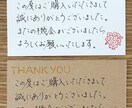 この度はご購入いただきまして
誠にありがとうございました。
また機会がございましたら
よろしくお願いいたします。
THANK YOU
この度はご購入いただきまして
誠にありがとうございました。
また機会がございましたら